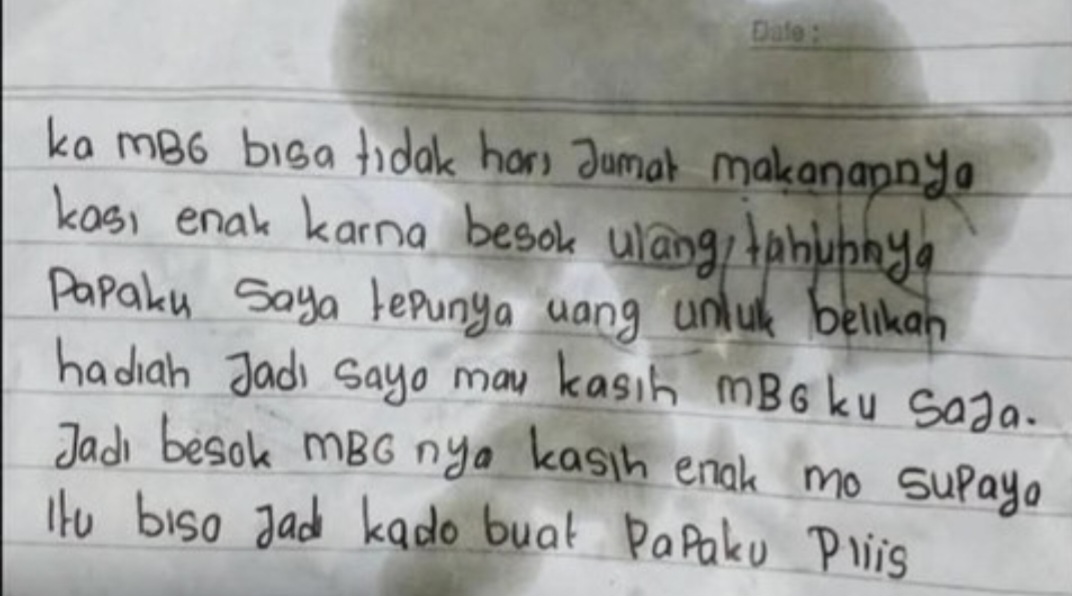 Date :
ka MBG bisa tidak hari Jumat makanannya
kasi enak karna besok ulang tahunnya
Papaku saya tepunya uang untuk belikan
hadiah Jadi saya mau kasih MBG ku saja.
Jadi besok MBG nya kasih enak mo supaya
itu bisa jadi kado buat Papaku Pliis